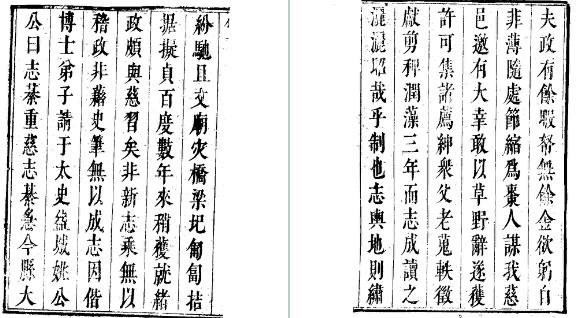 紛馳且文廟灾橋梁圮匍匐拮
据擬貞百度數年來稍獲就緒
政頗與慈習矣非新志乘無以
稽政非藉史筆無以成志因偕
博士弟子請于太史益城姚公
公曰志綦重慈志綦急今縣大
夫政有餘暇帑無餘金欲躬自
非薄隨處節縮爲棗人謀我慈
邑邀有大幸敢以草野辭遂獲
許可集諸薦紳衆父老蒐軼徵
獻剪稗潤藻三年而志成讀之
灑灑昭哉乎制也志輿地則繡